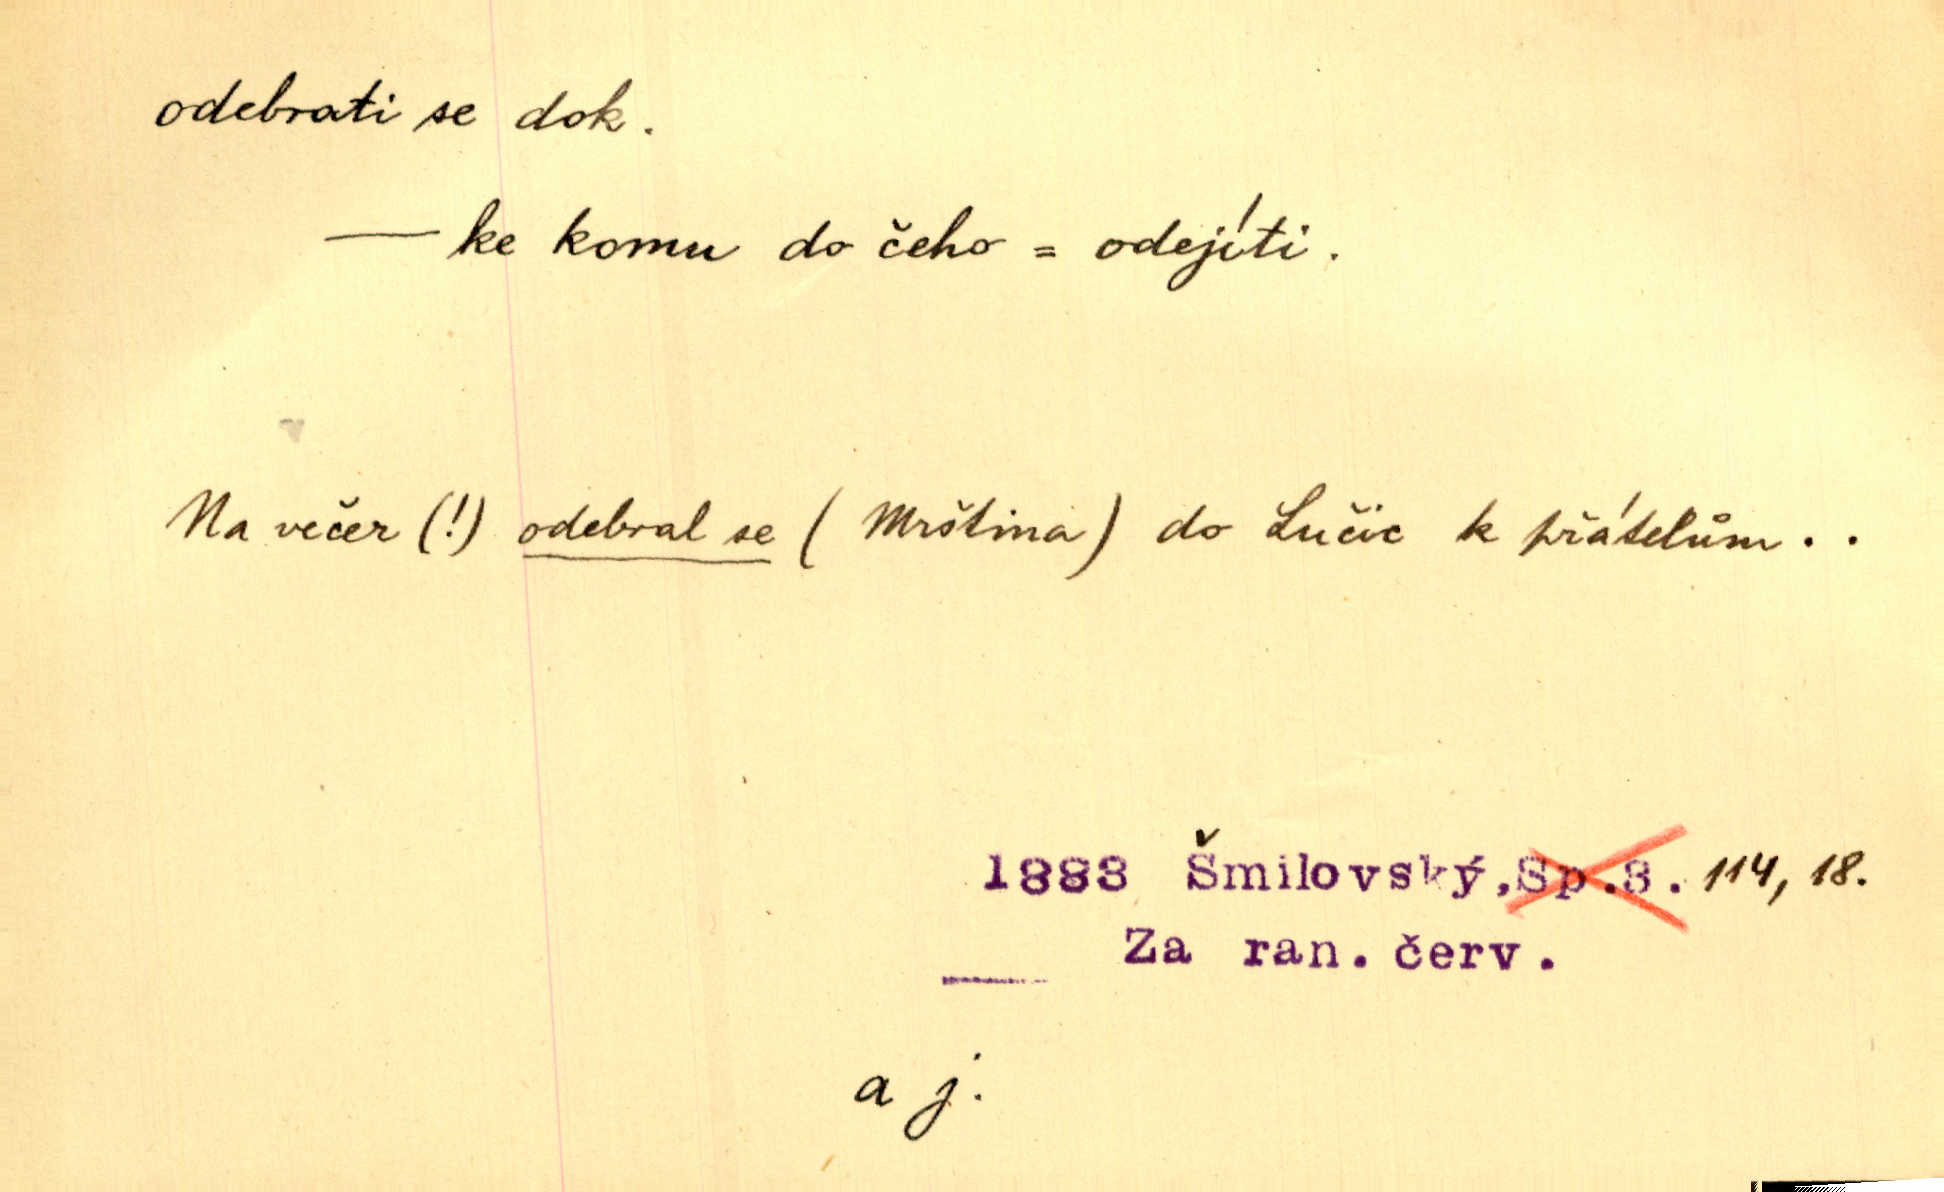 odebrati se dok.
— ke komu do čeho = odejíti.
Na večer (!) odebral se (Mrština) do Lučic k přátelům..
1883 Šmilovský, Sp.8. 114, 18.
Za ran. červ.
a j.